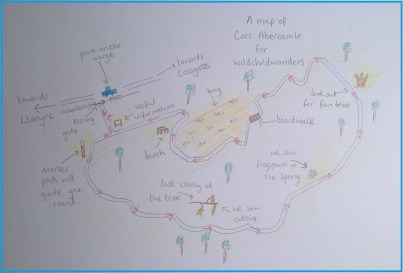 A map of
Cors Abercamlo
for
wildchildwanders
park on the
verge
towards
Crossgates
towards
Llanyre
kissing
gate
useful
information
bog
boardwalk
look out
for fun trees
bench
Marker
posts will
guide you
round
we saw
frogspawn in
the Spring
look closely at
the tree
we saw
catkins